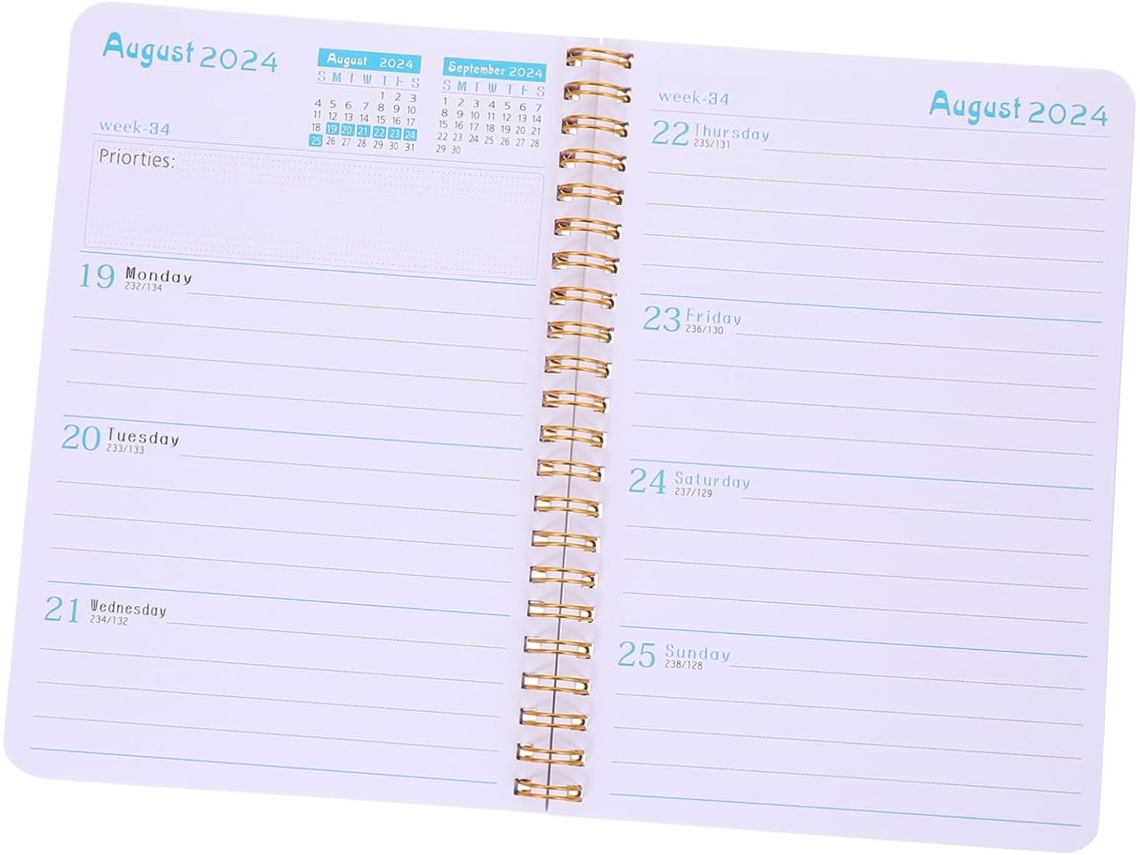 August 2024
August 2024
S M T W T F S
1 2 3
4 5 6 7 8 9 10
11 12 13 14 15 16 17
18 19 20 21 22 23 24
25 26 27 28 29 30 31
September 2024
S M T W T F S
1 2 3 4 5 6 7
8 9 10 11 12 13 14
15 16 17 18 19 20 21
22 23 24 25 26 27 28
29 30
week-34
Priorties:
19 Monday
232/134
20 Tuesday
233/133
21 Wednesday
234/132
week-34
August 2024
22 Thursday
235/131
23 Friday
236/130
24 Saturday
237/129
25 Sunday
238/128